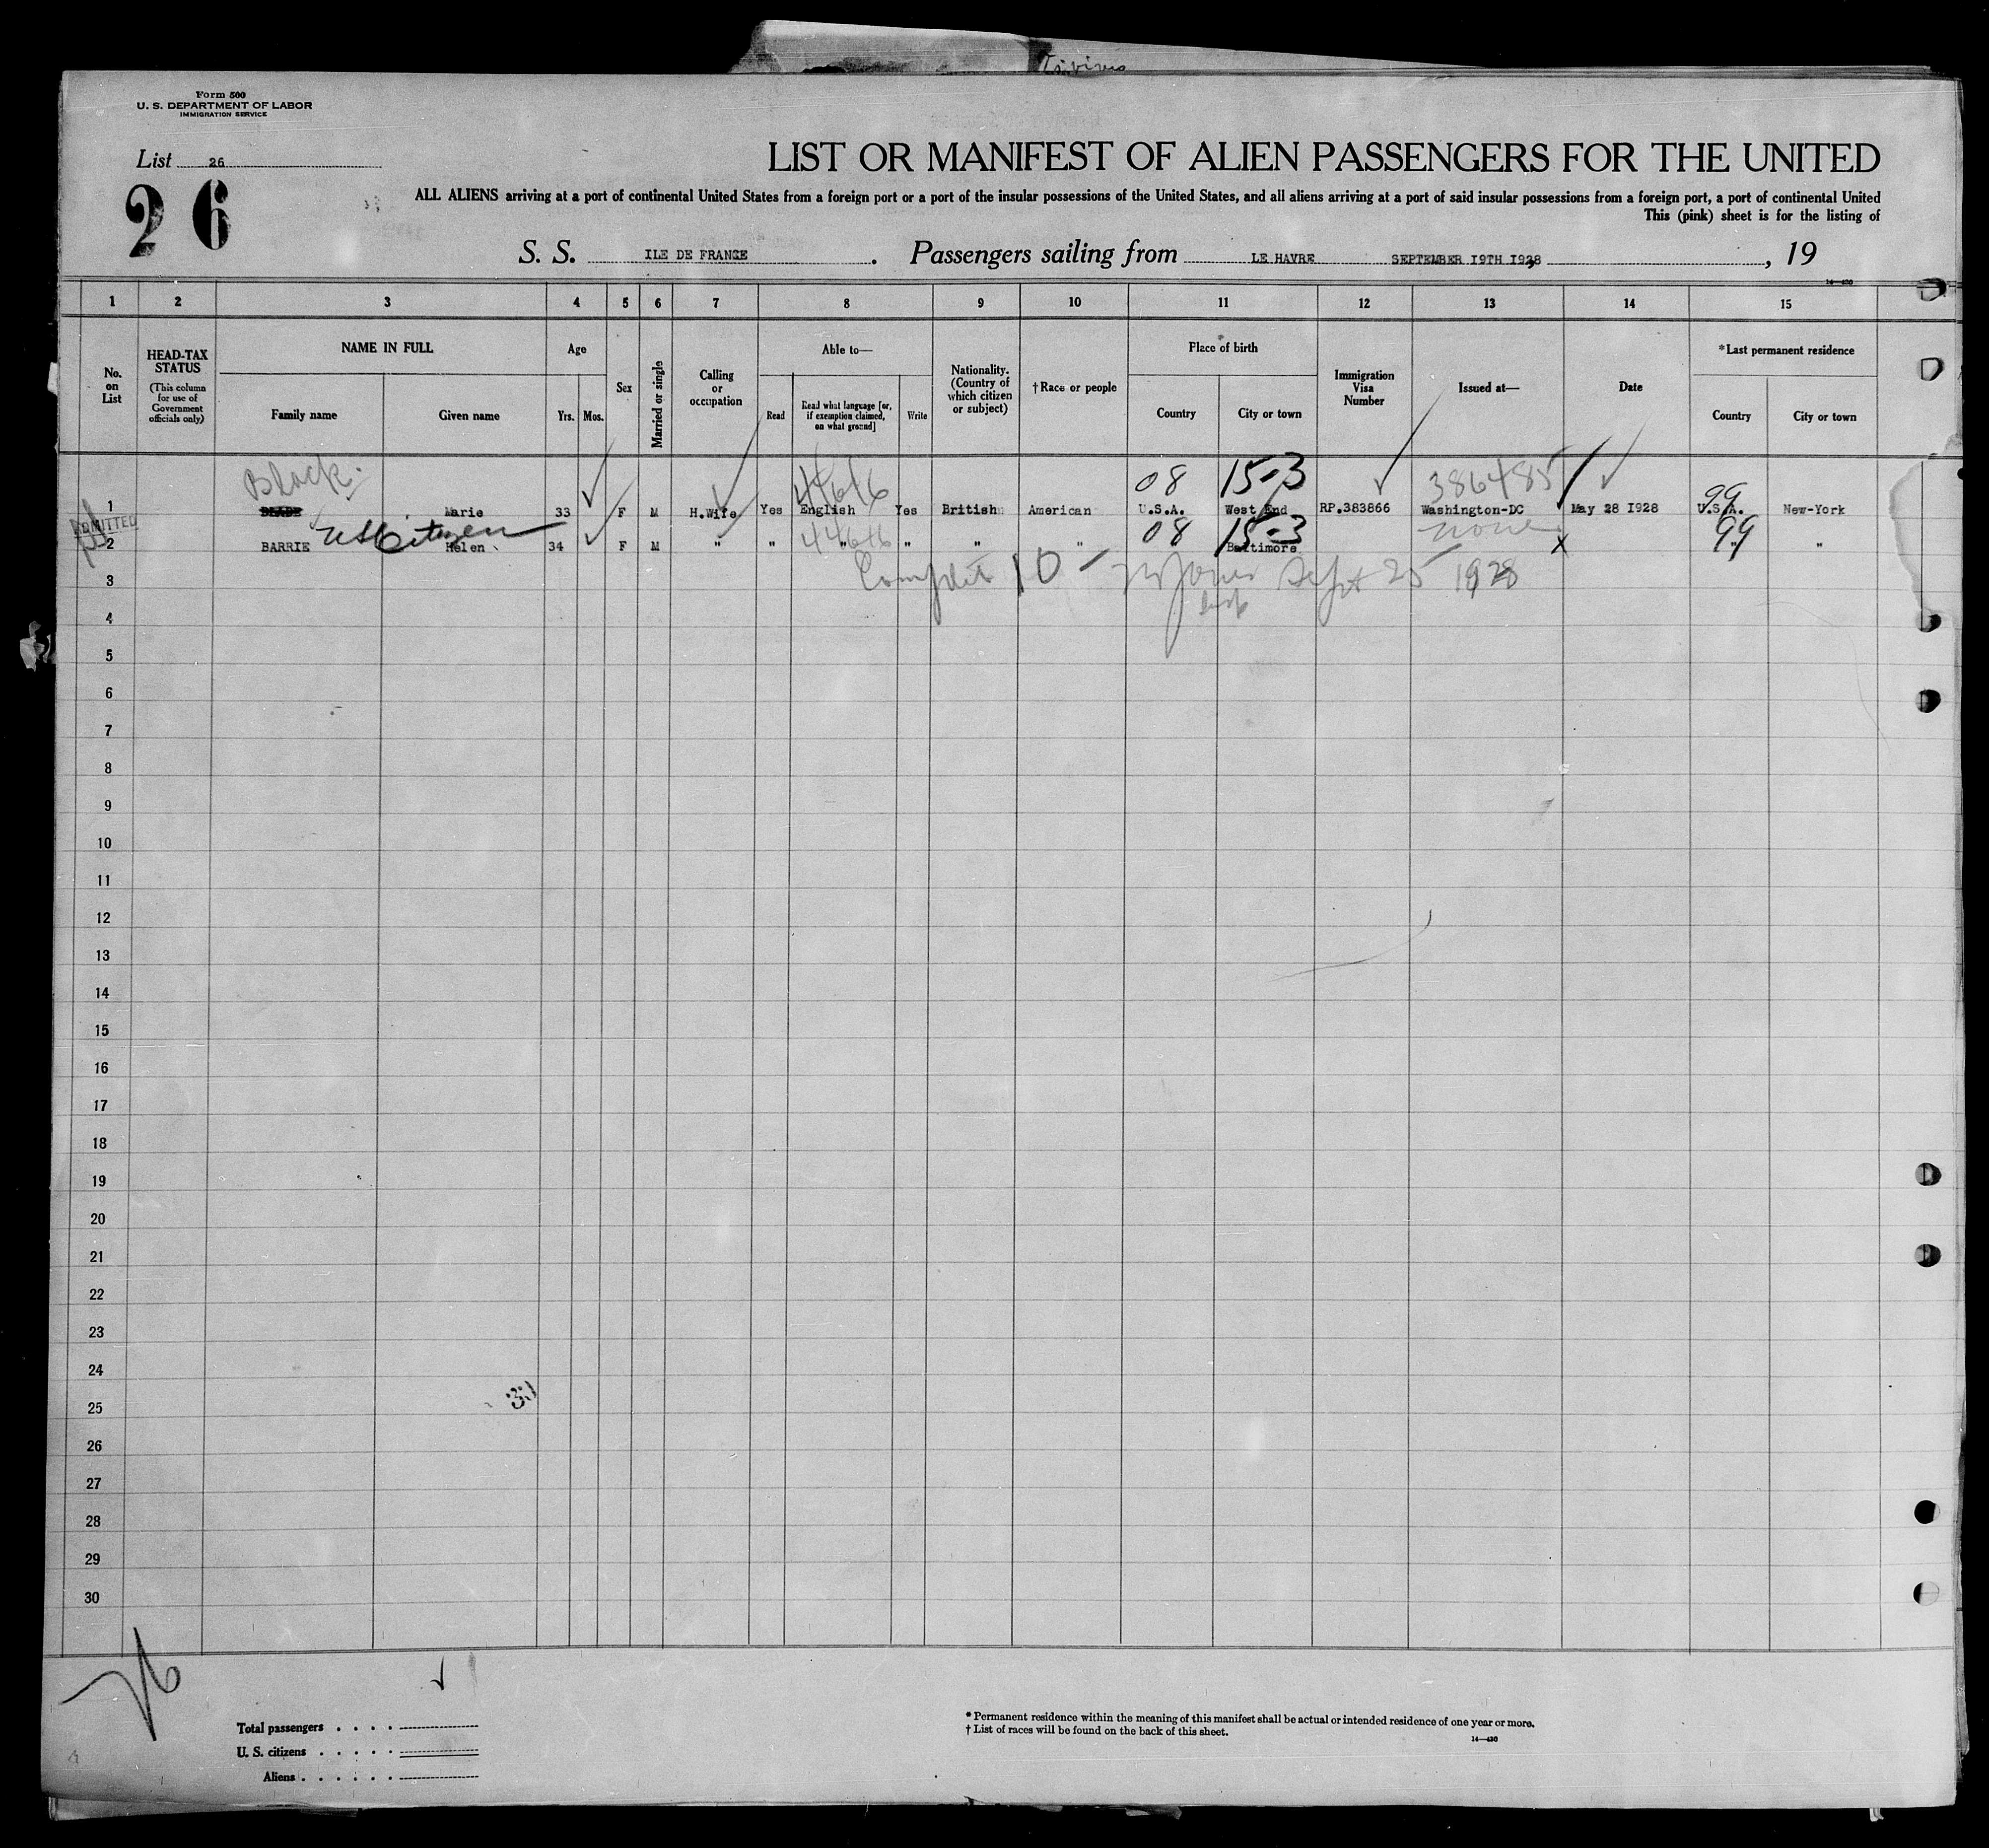 Form 500
U. S. DEPARTMENT OF LABOR
IMMIGRATION SERVICE
List 26
26
LIST OR MANIFEST OF ALIEN PASSENGERS FOR THE UNITED
ALL ALIENS arriving at a port of continental United States from a foreign port or a port of the insular possessions of the United States, and all aliens arriving at a port of said insular possessions from a foreign port, a port of continental United
This (pink) sheet is for the listing of
S. S. ILE DE FRANCE . Passengers sailing from LE HAVRE SEPTEMBER 19TH 1928 , 19
14—430
1 2 3 4 5 6 7 8 9 10 11 12 13 14 15
No. on List
HEAD-TAX STATUS
(This column for use of Government officials only)
NAME IN FULL
Family name Given name
Age
Yrs. Mos.
Sex
Married or single
Calling or occupation
Able to—
Read
Read what language [or, if exemption claimed, on what ground]
Write
Nationality. (Country of which citizen or subject)
† Race or people
Place of birth
Country City or town
Immigration Visa Number
Issued at—
Date
* Last permanent residence
Country City or town
Block 08 15-3 386485 99
1 Marie 33 F M H.Wife Yes English Yes British American U.S.A. West End RP.383866 Washington-DC May 28 1928 U.S.A. New-York
ADMITTED
US Citizen 08 15-3 none 99
2 BARRIE Helen 34 F M " " " " " " Baltimore X " "
Complete 10 - Sept 25 1928
3
4
5
6
7
8
9
10
11
12
13
14
15
16
17
18
19
20
21
22
23
24
25
26
27
28
29
30
Total passengers
U. S. citizens
Aliens
* Permanent residence within the meaning of this manifest shall be actual or intended residence of one year or more.
† List of races will be found on the back of this sheet.
14—430